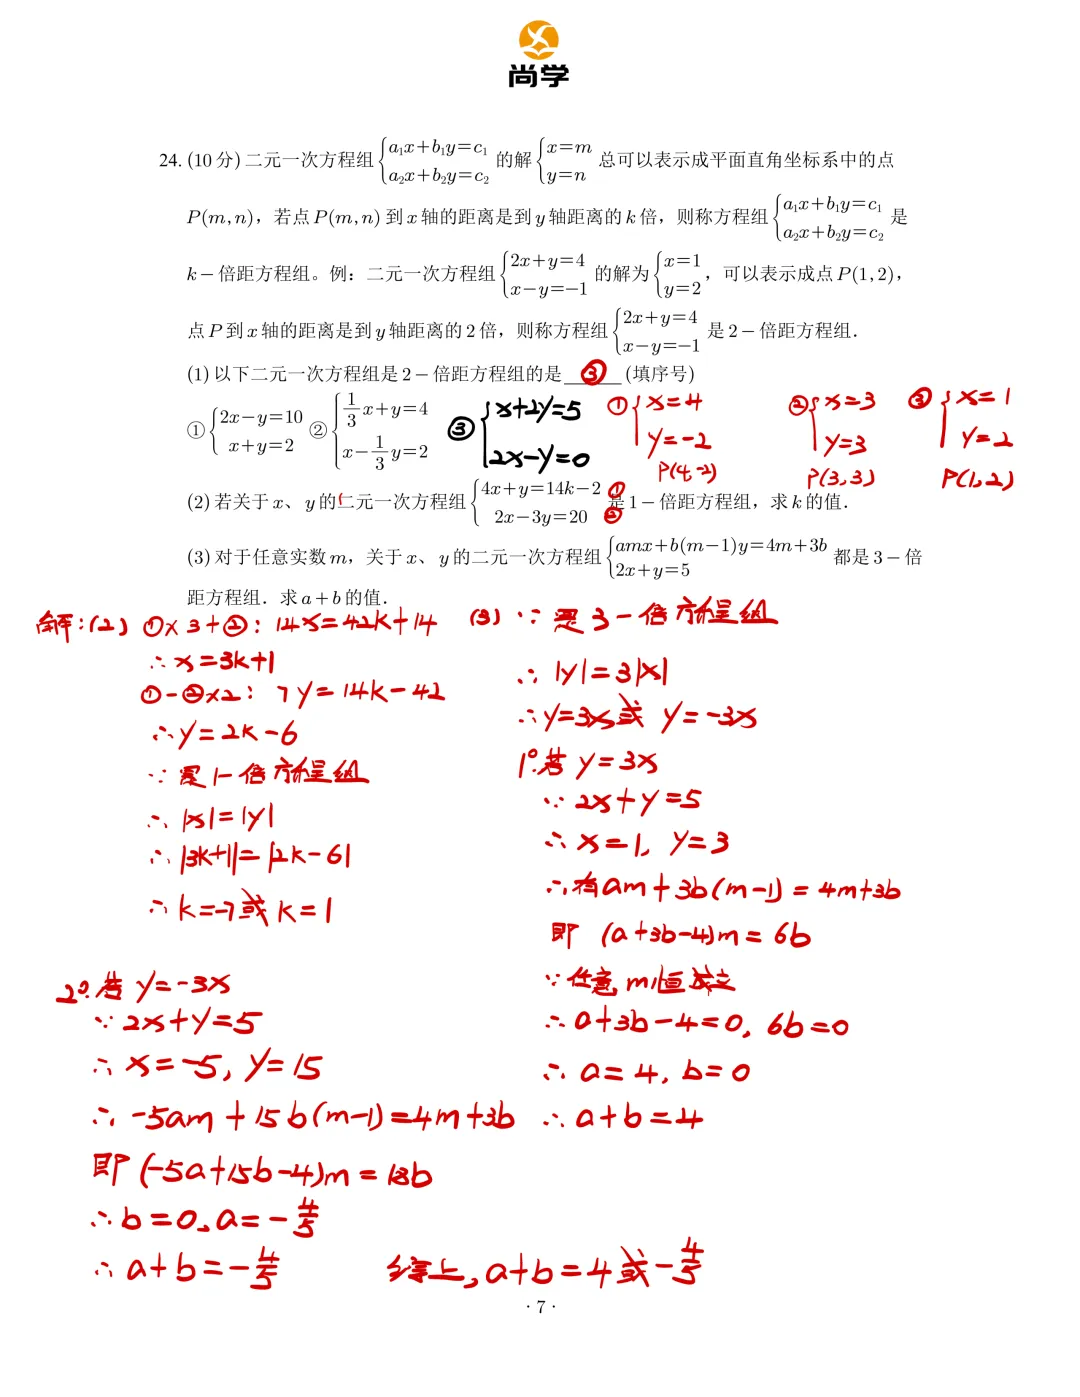 尚学
24. (10分) 二元一次方程组 {a₁x+b₁y=c₁ a₂x+b₂y=c₂ 的解 {x=m y=n 总可以表示成平面直角坐标系中的点
P(m,n)，若点P(m,n)到x轴的距离是到y轴距离的k倍，则称方程组 {a₁x+b₁y=c₁ a₂x+b₂y=c₂ 是
k-倍距方程组。例：二元一次方程组 {2x+y=4 x-y=-1 的解为 {x=1 y=2，可以表示成点P(1,2)，
点P到x轴的距离是到y轴距离的2倍，则称方程组 {2x+y=4 x-y=-1 是2-倍距方程组.
(1)以下二元一次方程组是2-倍距方程组的是 ③ (填序号)
① {2x-y=10 x+y=2 ② {1/3x+y=4 x-1/3y=2 ③ {x+2y=5 2x-y=0
① {x=4 y=-2 P(4,-2)
② {x=3 y=3 P(3,3)
③ {x=1 y=2 P(1,2)
(2)若关于x、y的二元一次方程组 {4x+y=14k-2 ① 2x-3y=20 ② 是1-倍距方程组，求k的值.
(3)对于任意实数m，关于x、y的二元一次方程组 {amx+b(m-1)y=4m+3b 2x+y=5 都是3-倍
距方程组. 求a+b的值.
解:(2) ①×3+②: 14x=42k+14
∴x=3k+1
①-②×2: 7y=14k-42
∴y=2k-6
∵是1-倍方程组
∴|x|=|y|
∴|3k+1|=|2k-6|
∴k=-7或k=1
(3) ∵是3-倍方程组
∴|y|=3|x|
∴y=3x或 y=-3x
1°若 y=3x
∵2x+y=5
∴x=1, y=3
∴有am+3b(m-1)=4m+3b
即 (a+3b-4)m=6b
∵任意m恒成立
∴a+3b-4=0, 6b=0
∴a=4, b=0
∴a+b=4
2°若 y=-3x
∵2x+y=5
∴x=-5, y=15
∴-5am+15b(m-1)=4m+3b
即(-5a+15b-4)m=18b
∴b=0, a=-4/5
∴a+b=-4/5
综上, a+b=4或-4/5
· 7 ·